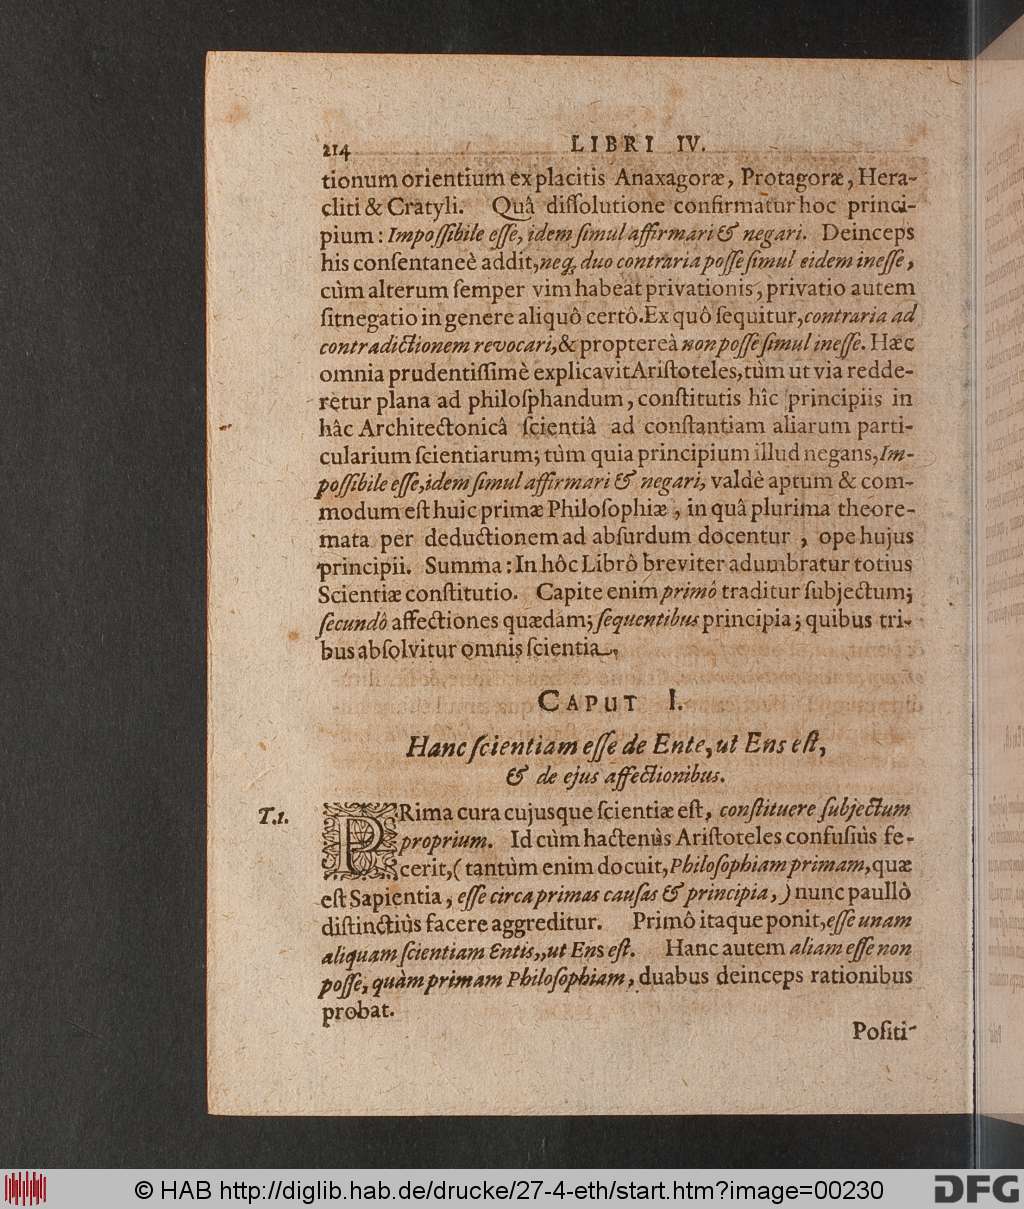 214 LIBRI IV.
tionum orientium ex placitis Anaxagoræ, Protagoræ, Hera-
cliti & Cratyli. Quâ diſſolutione confirmatur hoc princi-
pium: Impoſſibile eſſe, idem ſimul affirmari & negari. Deinceps
his conſentaneè addit, neq; duo contraria poſſe ſimul eidem ineſſe,
cùm alterum ſemper vim habeat privationis, privatio autem
ſit negatio in genere aliquô certô. Ex quô ſequitur, contraria ad
contradictionem revocari, & proptereà non poſſe ſimul ineſſe. Hæc
omnia prudentiſſimè explicavit Ariſtoteles, tùm ut via redde-
retur plana ad philoſphandum, conſtitutis hîc principiis in
hâc Architectonicâ ſcientiâ ad conſtantiam aliarum parti-
cularium ſcientiarum; tùm quia principium illud negans, Im-
poſſibile eſſe, idem ſimul affirmari & negari, valdè aptum & com-
modum eſt huic primæ Philoſophiæ, in quâ plurima theore-
mata per deductionem ad abſurdum docentur, ope hujus
principii. Summa: In hôc Librô breviter adumbratur totius
Scientiæ conſtitutio. Capite enim primô traditur ſubjectum;
ſecundô affectiones quædam; ſequentibus principia; quibus tri-
bus abſolvitur omnis ſcientia.
CAPUT I.
Hanc ſcientiam eſſe de Ente, ut Ens eſt,
& de ejus affectionibus.
T.1. PRima cura cujusque ſcientiæ eſt, conſtituere ſubjectum
proprium. Id cùm hactenùs Ariſtoteles confuſiùs fe-
cerit, (tantùm enim docuit, Philoſophiam primam, quæ
eſt Sapientia, eſſe circa primas cauſas & principia,) nunc paullò
diſtinctiùs facere aggreditur. Primô itaque ponit, eſſe unam
aliquam ſcientiam Entis, ut Ens eſt. Hanc autem aliam eſſe non
poſſe, quàm primam Philoſophiam, duabus deinceps rationibus
probat.
Poſiti-
© HAB http://diglib.hab.de/drucke/27-4-eth/start.htm?image=00230
DFG